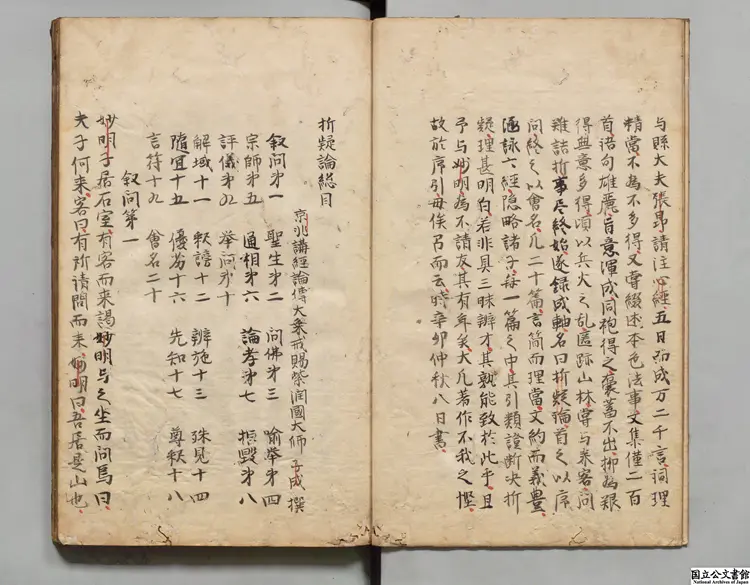 与縣大夫張昂請注心經五日而成万二千言詞理
精當不為不多得又嘗綴述本色法事文集僅二百
首語句雄麗旨意渾成同袍得之囊蓄不出抑為艱
得與意多得頃以兵火之乱匿跡山林嘗与来客問
難詰折事尽終始遂録成軸名曰折疑論首之以序
問終之以會名凢二十篇言簡而理當文約而義豊
涵詠六經隐略諸子每一篇之中其引類證断决折
疑理甚明白若非具三昧辨才其孰能致於此乎且
予与妙明為不請友其有年矣大凢著作不我之慳
故於序引毋俟召而云時辛卯仲秋八日書
折疑論総目
京兆講經論傳大衆戒賜紫潤國大師子成撰
叙问第一 聖生第二 问佛第三 喻举第四
宗師第五 通相第六 論孝第七 拒毀第八
評儀第九 举问第十
解域十一 釈謗十二 辨施十三 殊見十四
隨宜十五 優劣十六 先知十七 尊釈十八
言符十九 會名二十
叙问第一
妙明子居石室有客而来謁妙明与之坐而問焉曰
夫子何来客曰有所請問而来妙明曰吾居是山也
国立公文書館
National Archives of Japan